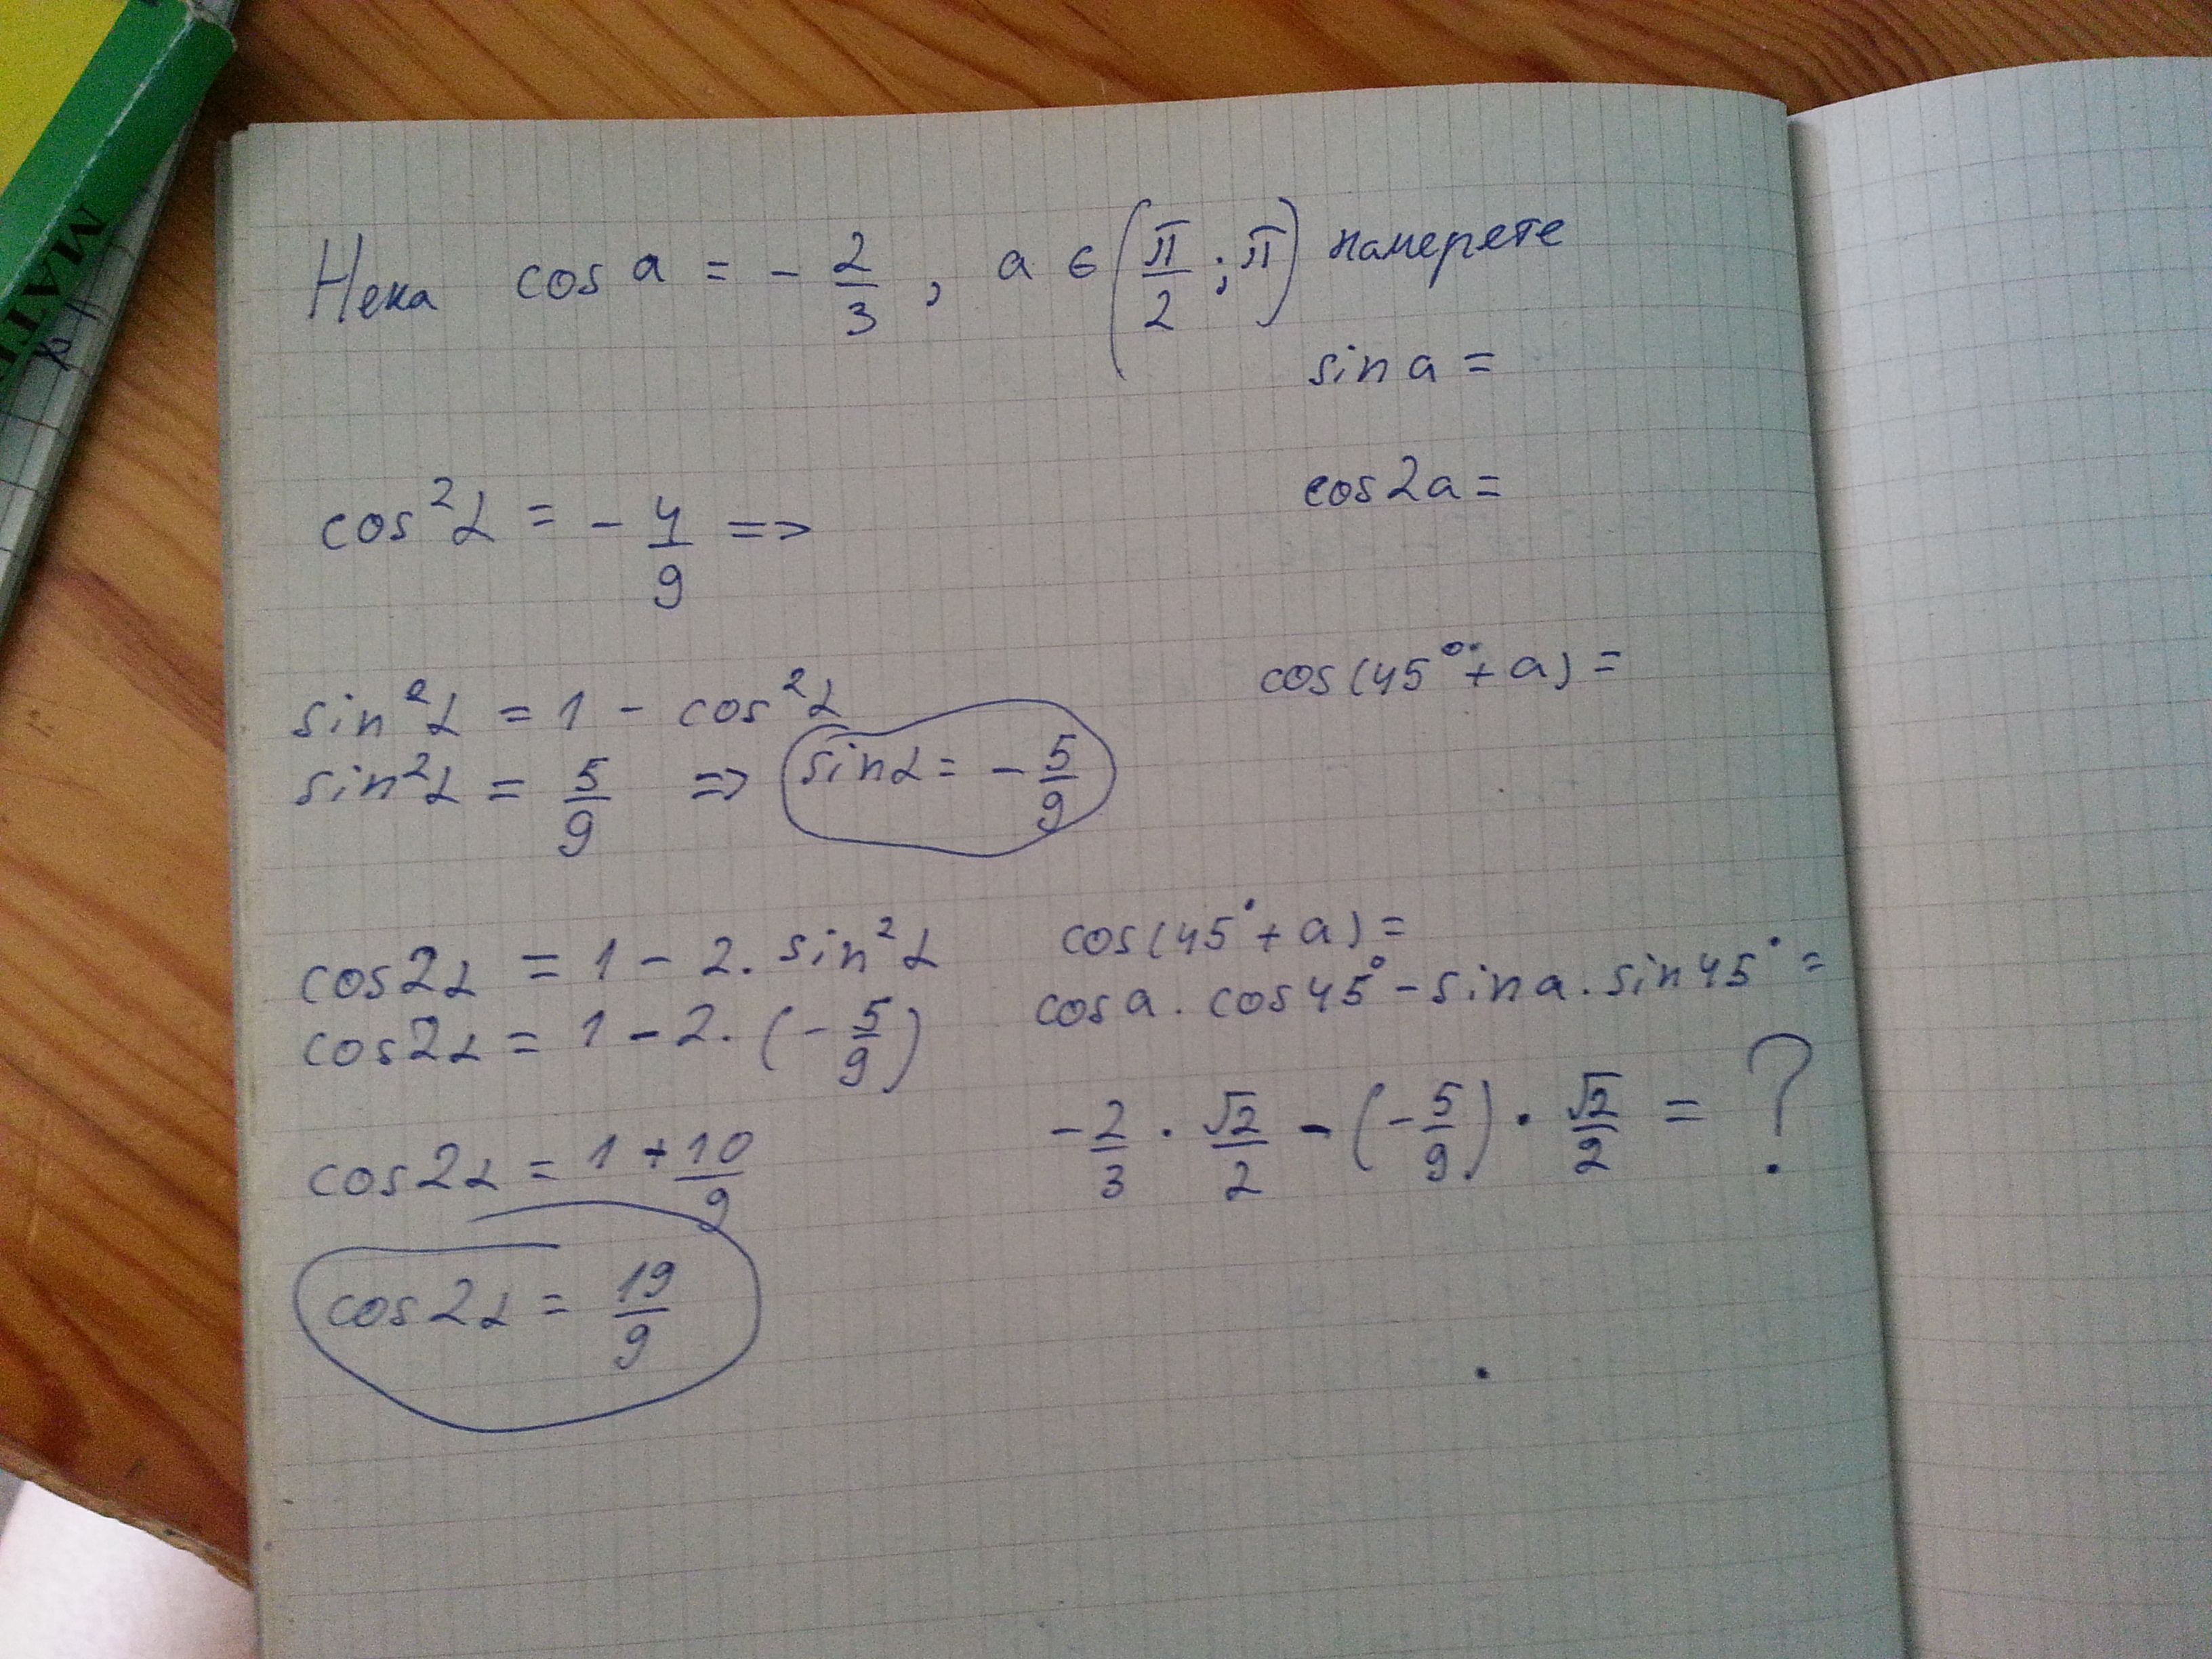 Нека cos a = - 2/3 , a ∈ (π/2 ; π) намерете
sin a =
cos2a =
cos²α = - 4/9 =>
cos(45°+a) =
sin²α = 1 - cos²α
sin²α = 5/9 => sinα = - 5/9
cos2α = 1 - 2. sin²α
cos2α = 1 - 2. (- 5/9)
cos2α = 1 + 10/9
cos2α = 19/9
cos(45°+a) =
cos a . cos45° - sin a . sin45° =
- 2/3 . √2/2 - (- 5/9) . √2/2 = ?
MAT